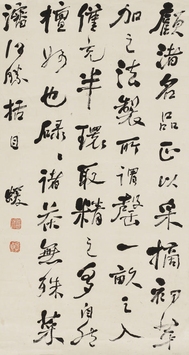 顧渚名品正以采摘初芽
加之法製所謂罄一畝之入
僅充半環取精之多自然
擅妙也碌碌諸茶無殊菜
瀋何勝括目